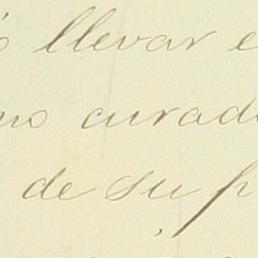 ó llevar e
mo curado
de su p